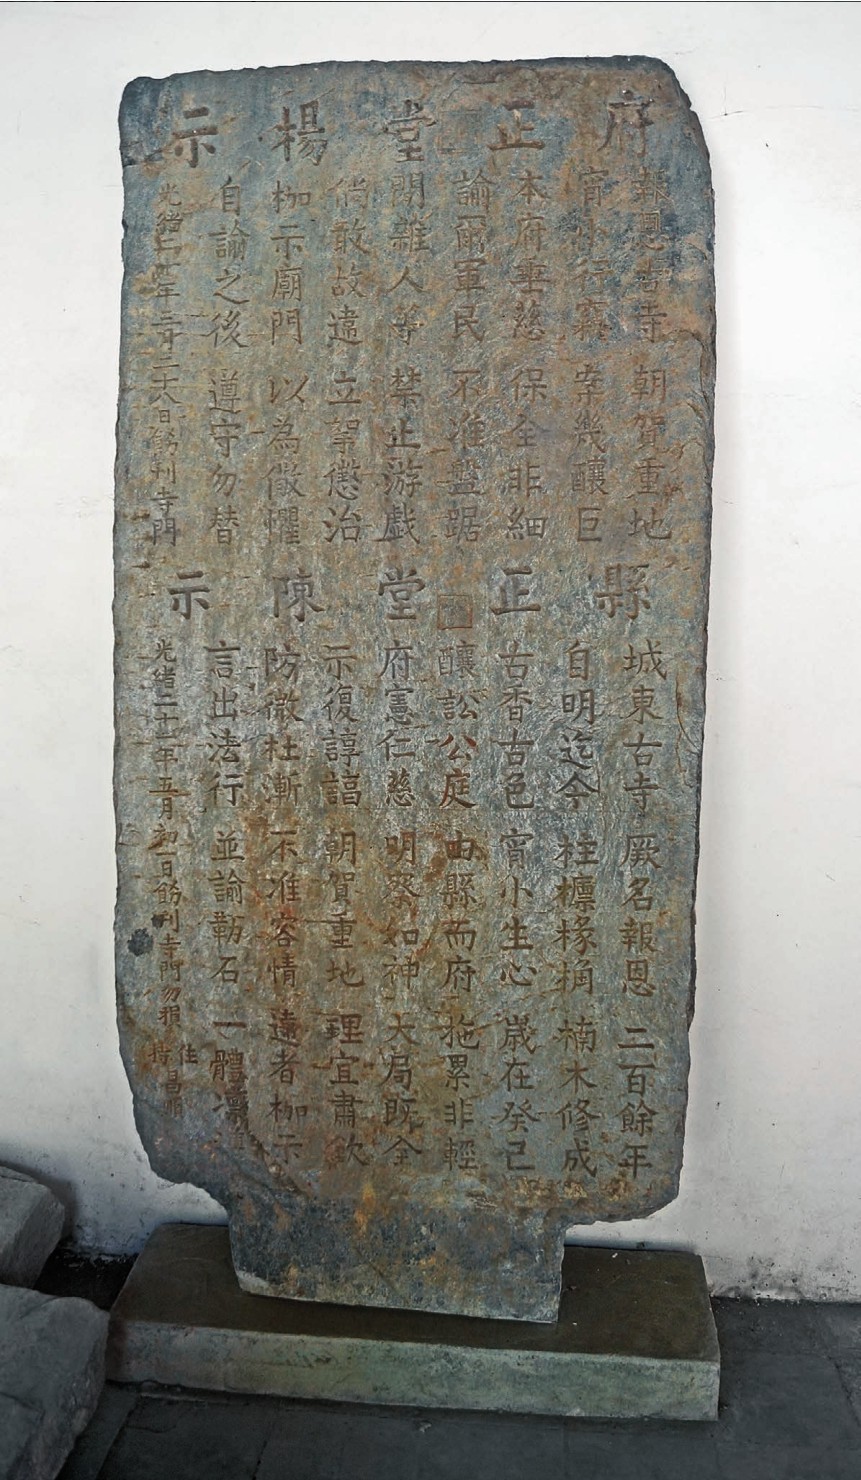 府正堂楊示
報恩古寺 朝賀重地
宵小行竊 案幾釀巨
本府垂慈 保全非細
諭爾軍民 不准盤踞
閒雜人等 禁止游戲
倘敢故違 立拏懲治
枷示廟門 以為儆懼
自諭之後 遵守勿替
光緒二十年 二十六日 刊寺門
縣正堂陳示
城東古寺 厥名報恩 二百餘年
自明迄今 柱檩椽桷 楠木修成
古香古色 宵小生心 歲在癸已
釀訟公庭 由縣而府 拖累非輕
府憲仁慈 明察如神 大局既全
示復諄諄 朝賀重地 理宜肅欽
防微杜漸 不准容情 違者枷示
言出法行 並諭勒石 一體凜
光緒二十一年五月初一日 刊寺門勿損
住持昌